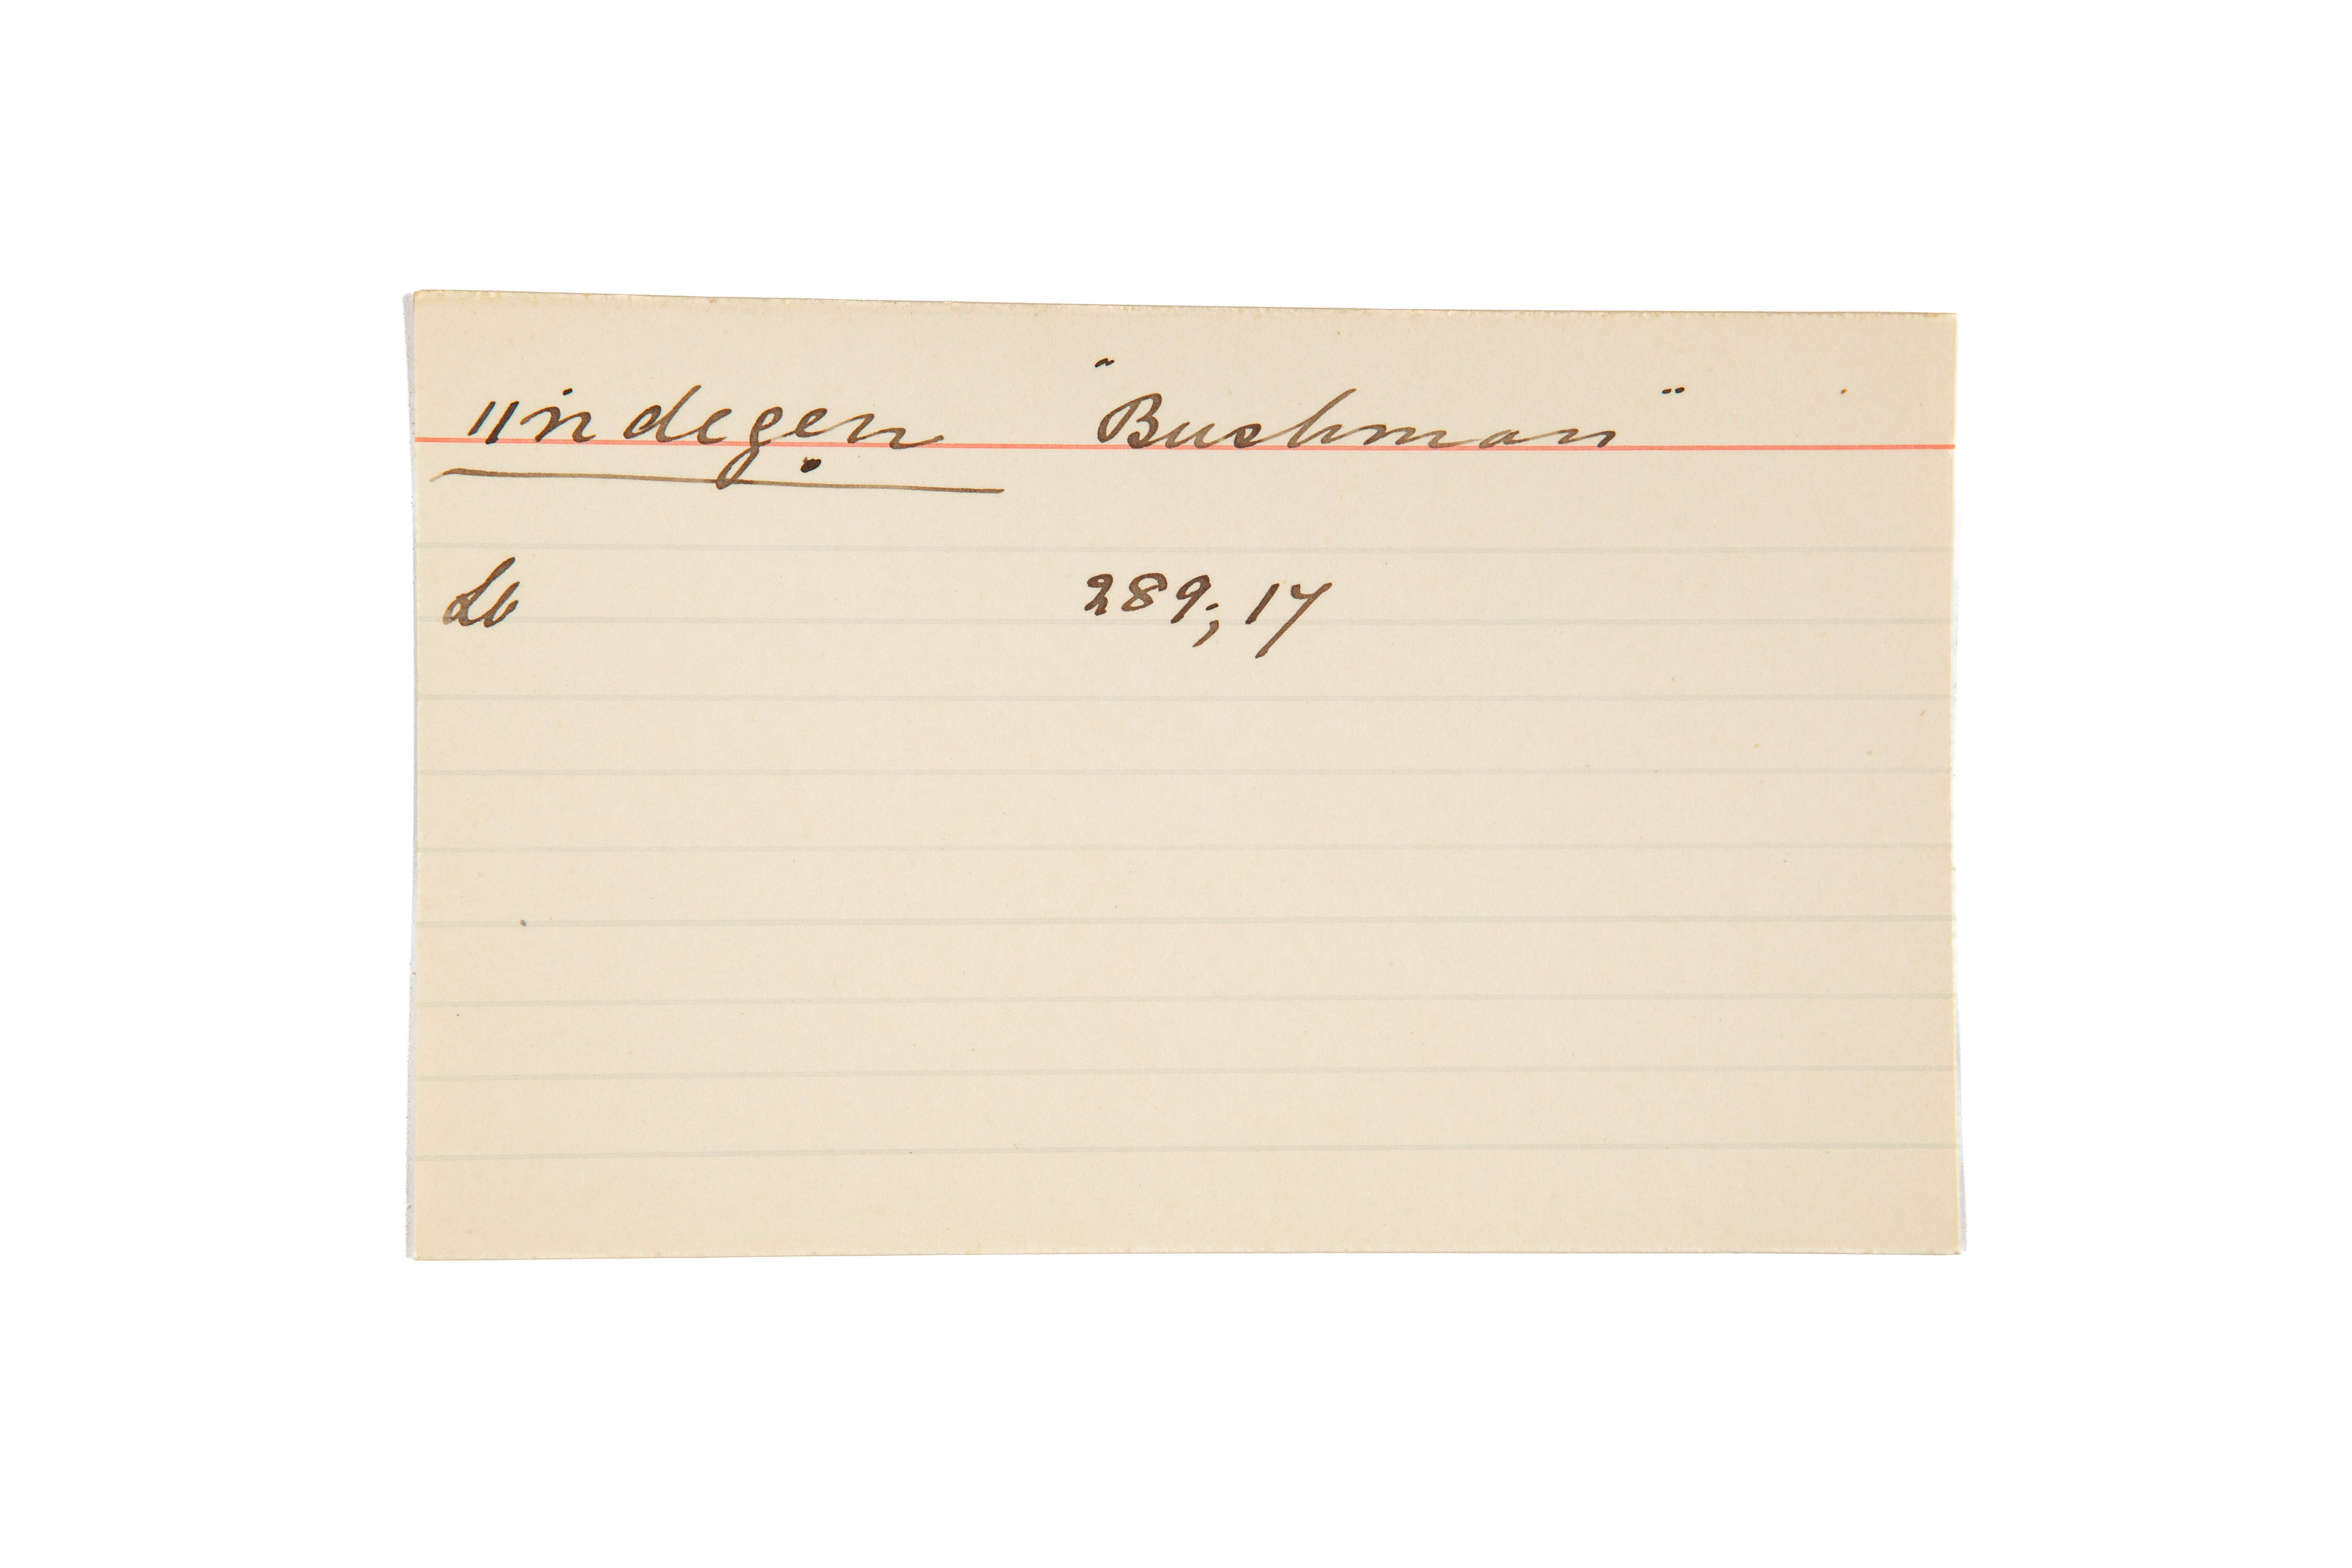 ǁindegẹn "Bushman"
Lb 289; 17